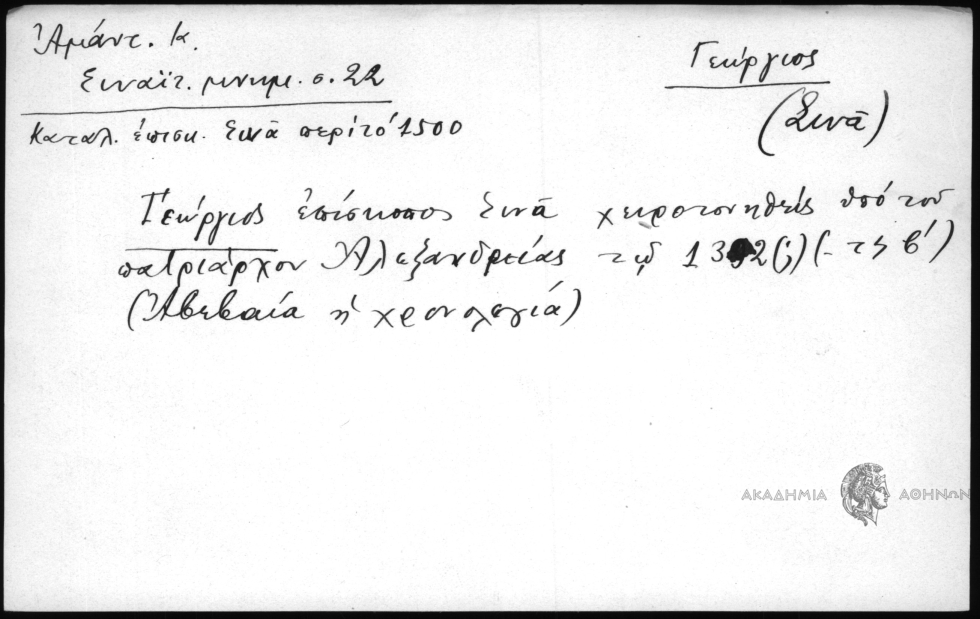 Ἀμάντ. Κ.
Σιναϊτ. μνημ. σ. 22
Καταλ. ἐπισκ. Σινᾶ περὶ τὸ 1500
Γεώργιος
(Σινᾶ)
Γεώργιος ἐπίσκοπος Σινᾶ χειροτονηθεὶς ὑπὸ τοῦ
πατριάρχου Ἀλεξανδρείας τῷ 13 2(;)(- τϟβ')
(Ἀβεβαία ἡ χρονολογία)
ΑΚΑΔΗΜΙΑ ΑΘΗΝΩΝ